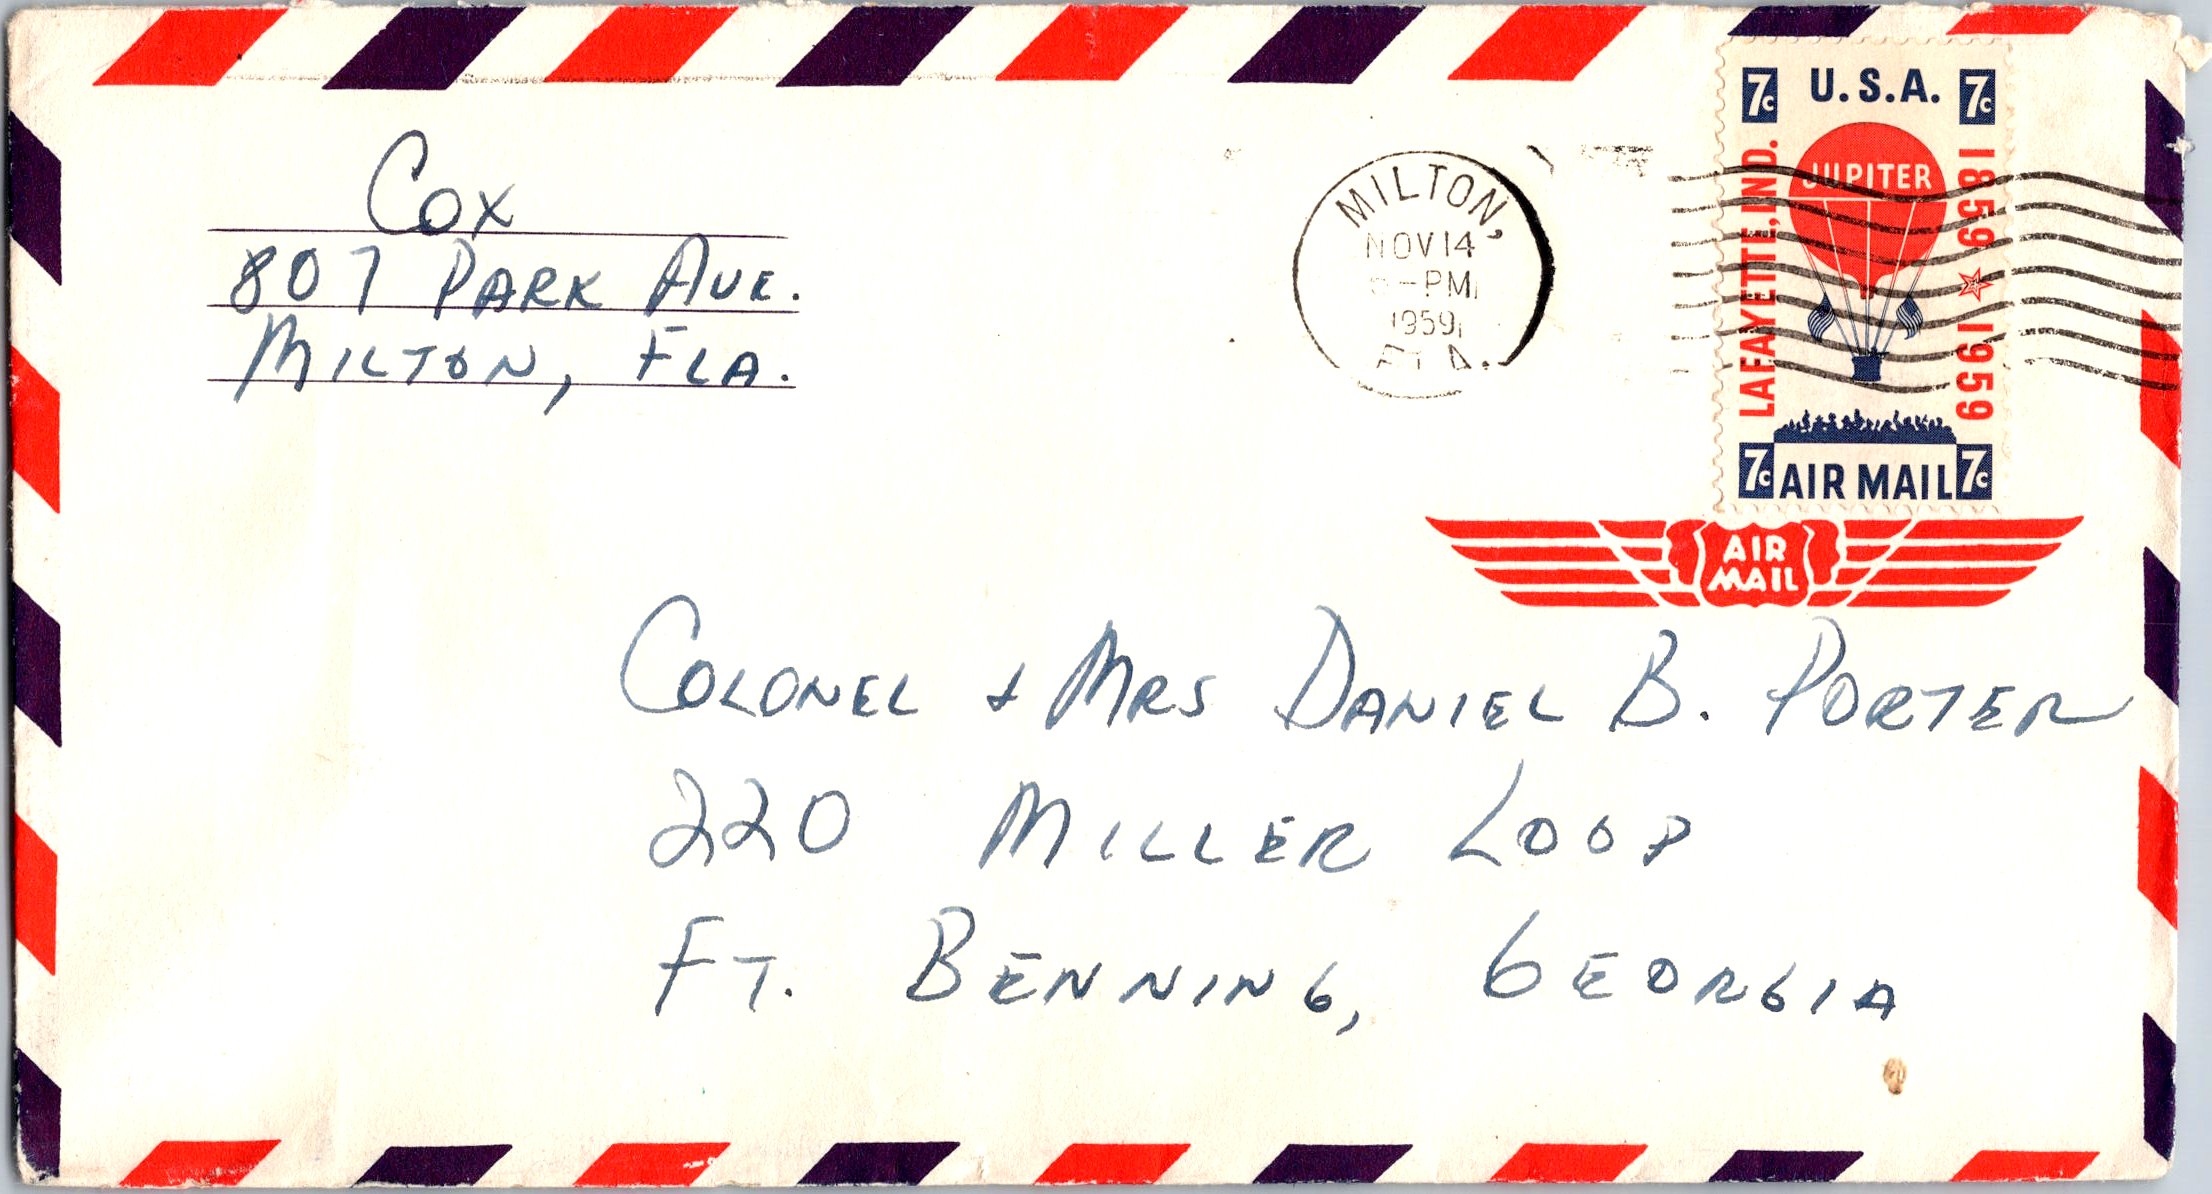 Cox
807 PARK AVE.
MILTON, FLA.
MILTON,
NOV 14
-PM
1959
FLA.
7c U.S.A. 7c
LAFAYETTE, IND.
JUPITER
1859 ★ 1959
7c AIR MAIL 7c
AIR
MAIL
COLONEL + MRS DANIEL B. PORTER
220 MILLER LOOP
FT. BENNING, GEORGIA